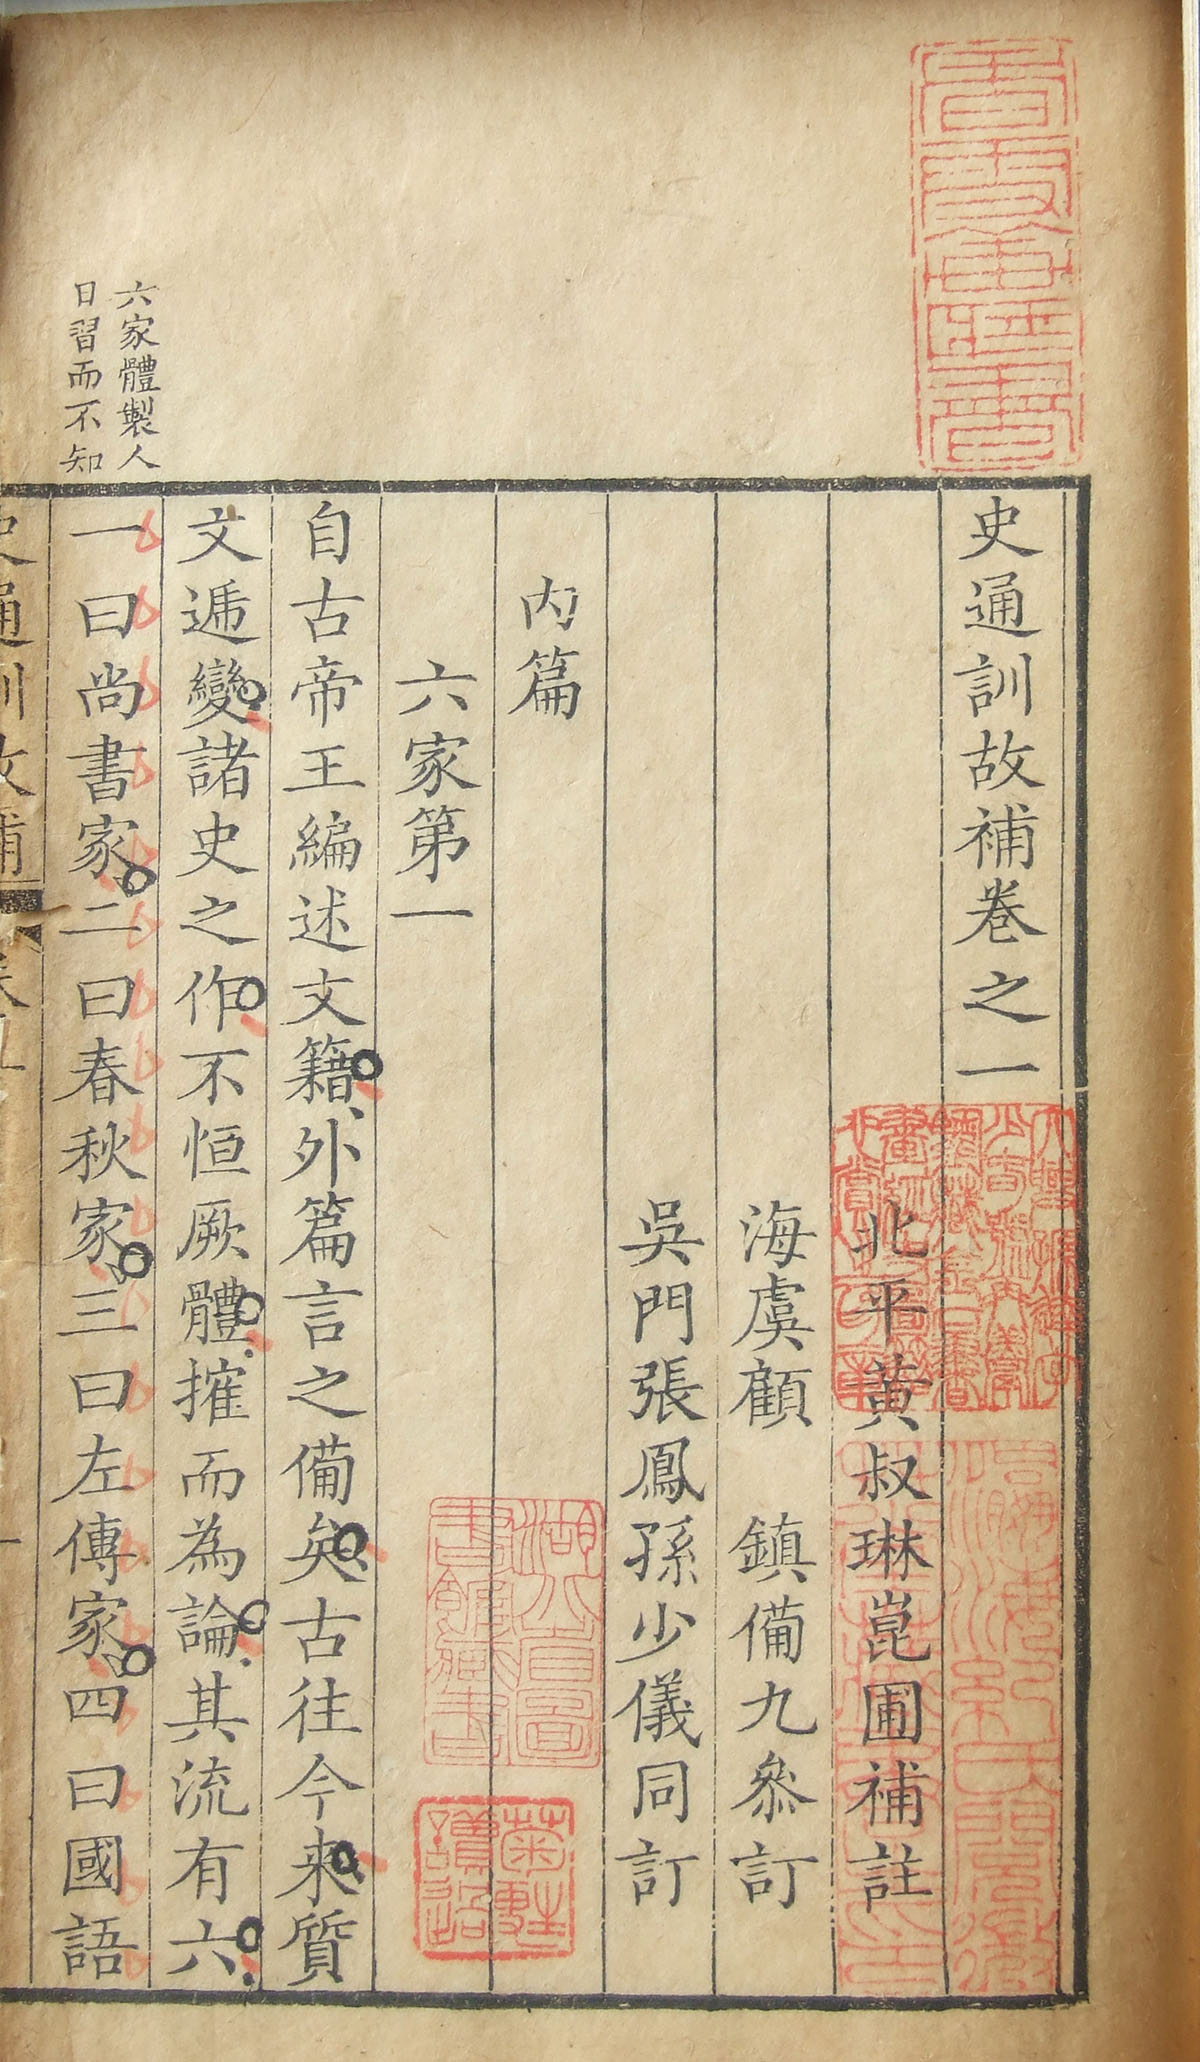 史通訓故補卷之一
北平黃叔琳崑圃補註
海虞顧鎮備九叅訂
吳門張鳳孫少儀同訂
內篇
六家第一
自古帝王編述文籍外篇言之備矣古往今來質
文遞變諸史之作不恒厥體搉而為論其流有六
六家體製人
日習而不知
一曰尚書家二曰春秋家三曰左傳家四曰國語
史通訓故補